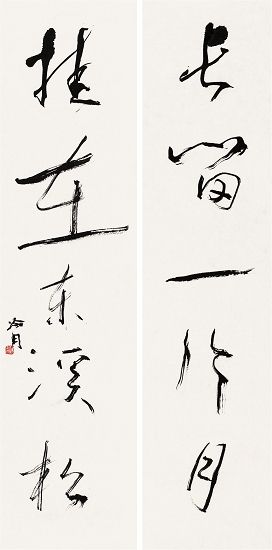 长留一片月
挂在东溪松
冷月